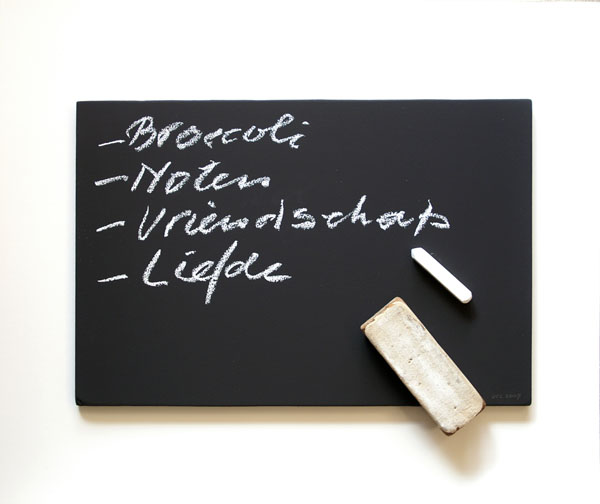 - Broccoli
- Noten
- Vriendschap
- Liefde